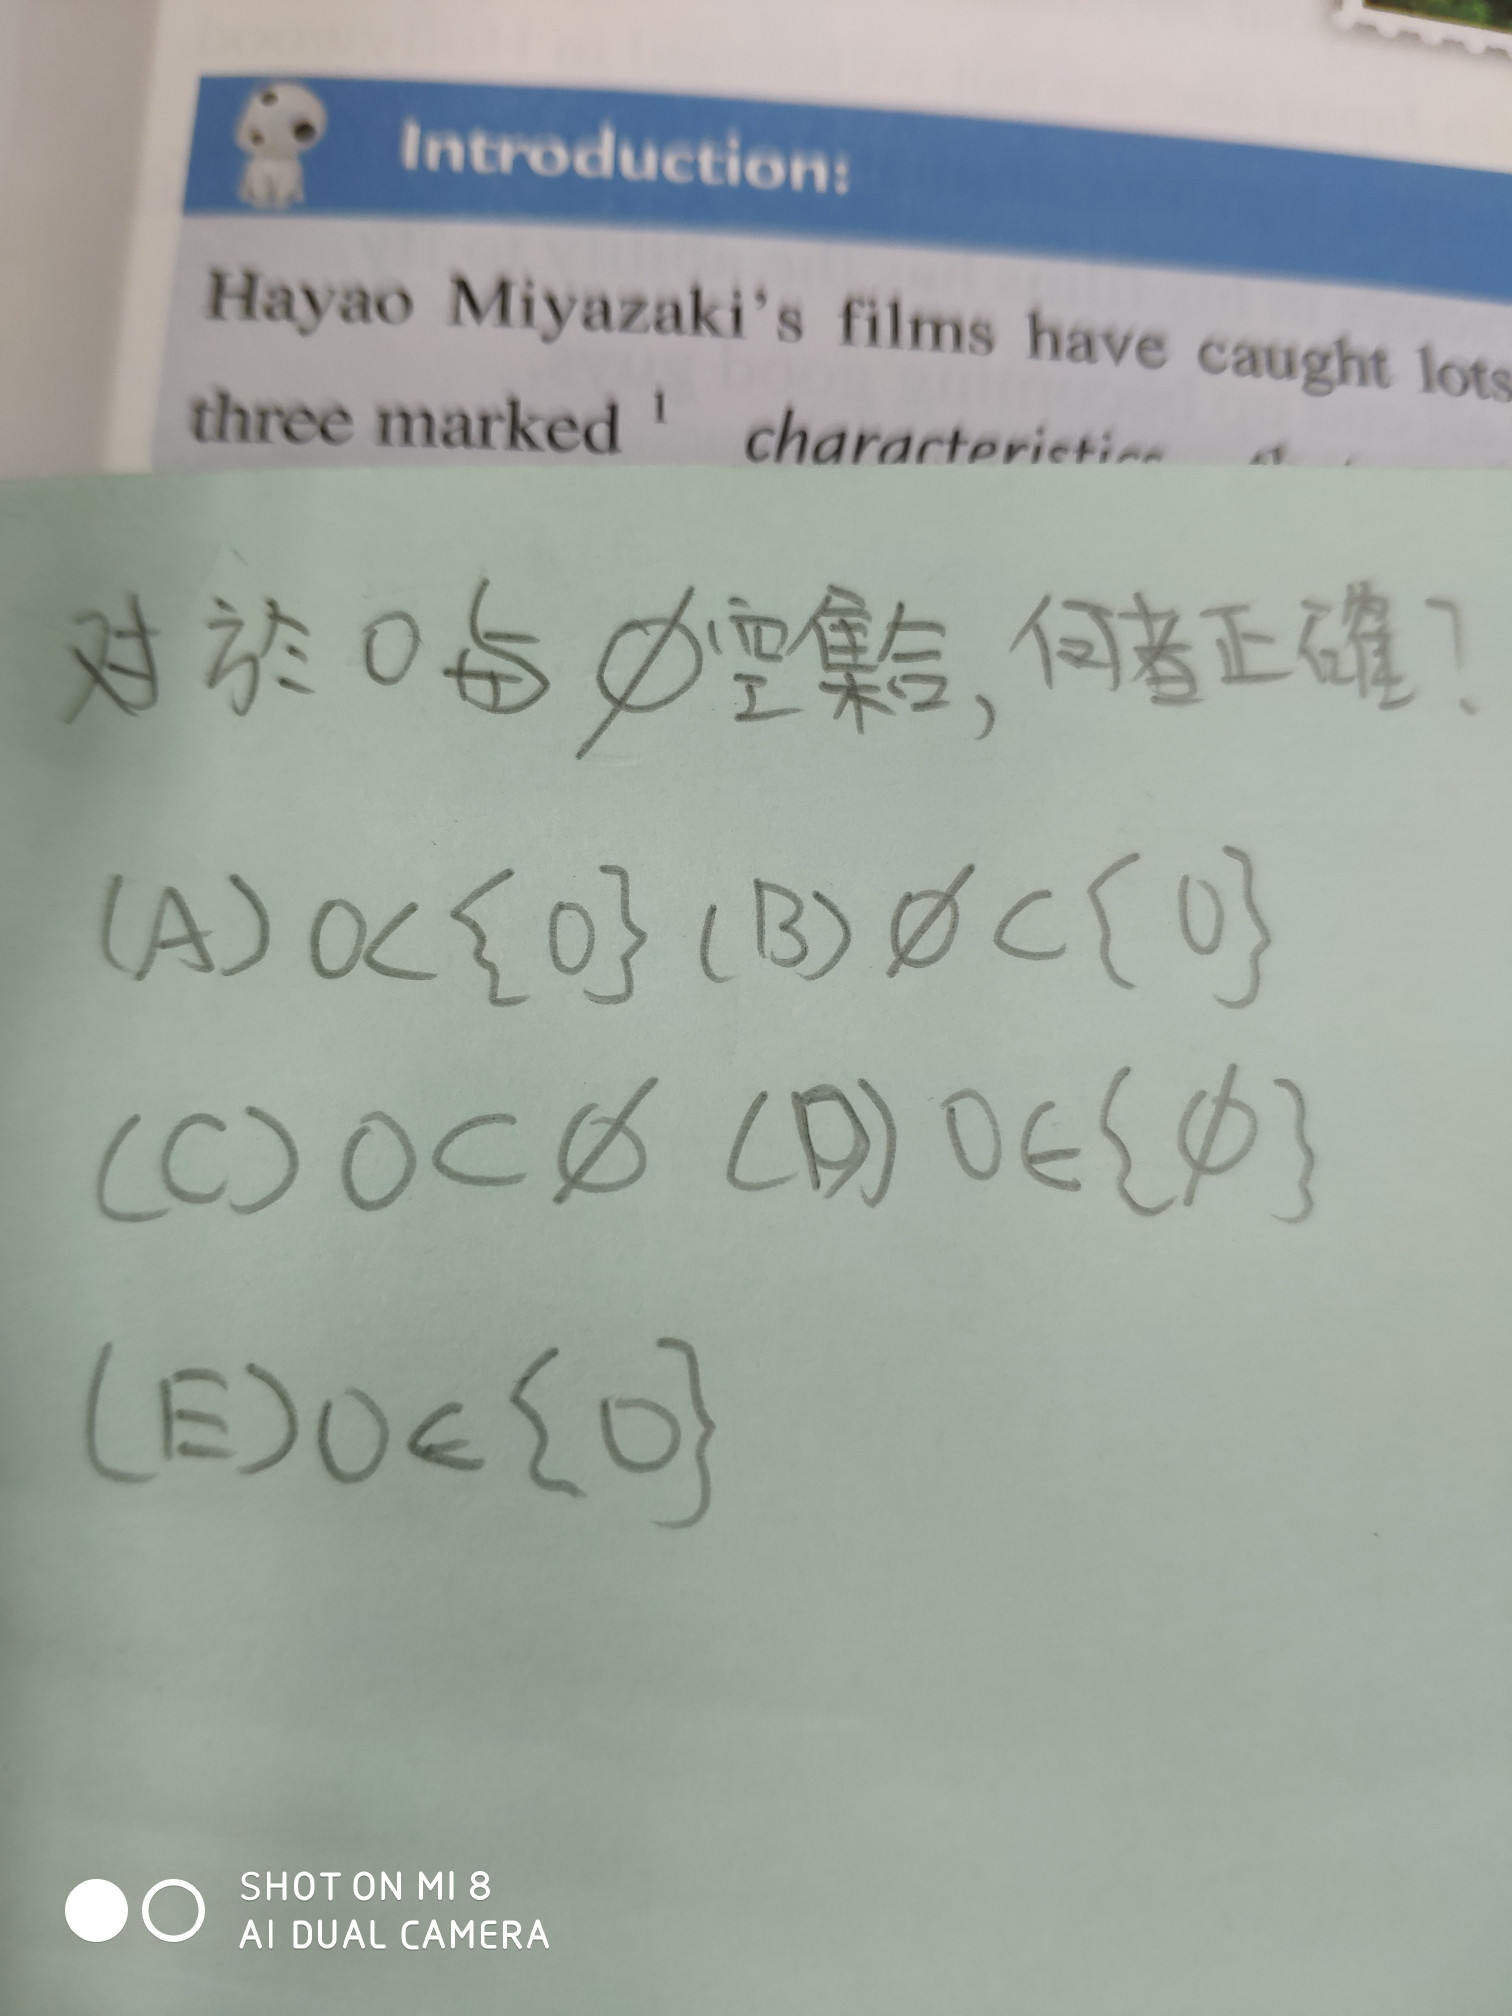 Introduction:
Hayao Miyazaki's films have caught lots
three marked 1 characteristics
对於0与∅空集合,何者正確?
(A)0⊂{0}(B)∅⊂{0}
(C)0⊂∅ (D)0∈{∅}
(E)0∈{0}
SHOT ON MI 8
AI DUAL CAMERA